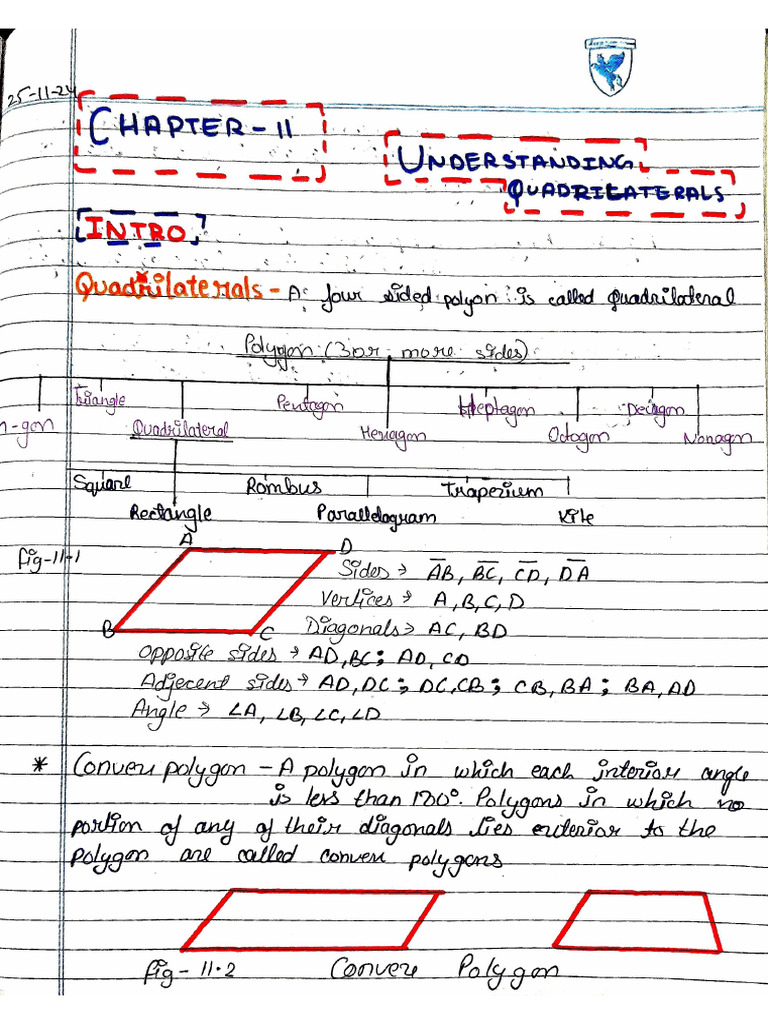 25-11-24
CHAPTER-11
UNDERSTANDING
QUADRILATERALS
INTRO
Quadrilaterals - A four sided polyon is called quadrilateral
Polygon (3 or more sides)
Triangle Pentagon Heptagon Decagon
n-gon Quadrilateral Hexagon Octogon Nonagon
Square Rombus Trapezium
Rectangle Parallelogram Kite
A D
fig-11-1
Sides → A̅B̅, B̅C̅, C̅D̅, D̅A̅
Vertices → A, B, C, D
B C Diagonals → AC, BD
Opposite sides → AD, BC; AD, CD
Adjecent sides → AD, DC; DC, CB; CB, BA; BA, AD
Angle → ∠A, ∠B, ∠C, ∠D
* Convex polygon - A polygon in which each interior angle
is less than 180°. Polygons in which no
portion of any of their diagonals lies exterior to the
polygon are called convex polygons
fig - 11.2 Convex Polygon